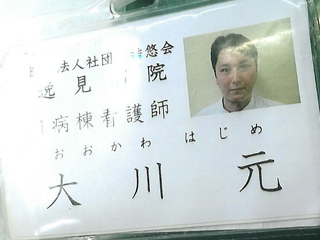 法人社団 悠会
逸見 院
病棟看護師
おおかわ はじめ
大川 元